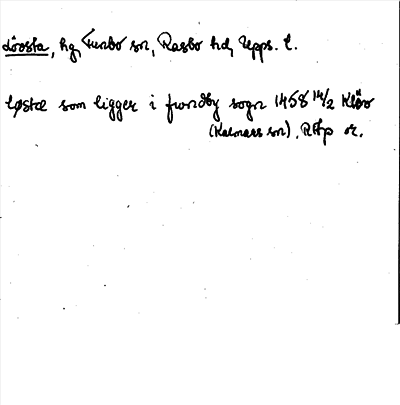 Lövsta, hg, Funbo sn, Rasbo hd, Upps. l.
løstæ som ligger i fwndby sogn 1458 14/2 Kløø
(Kalmars sn), RAp or.